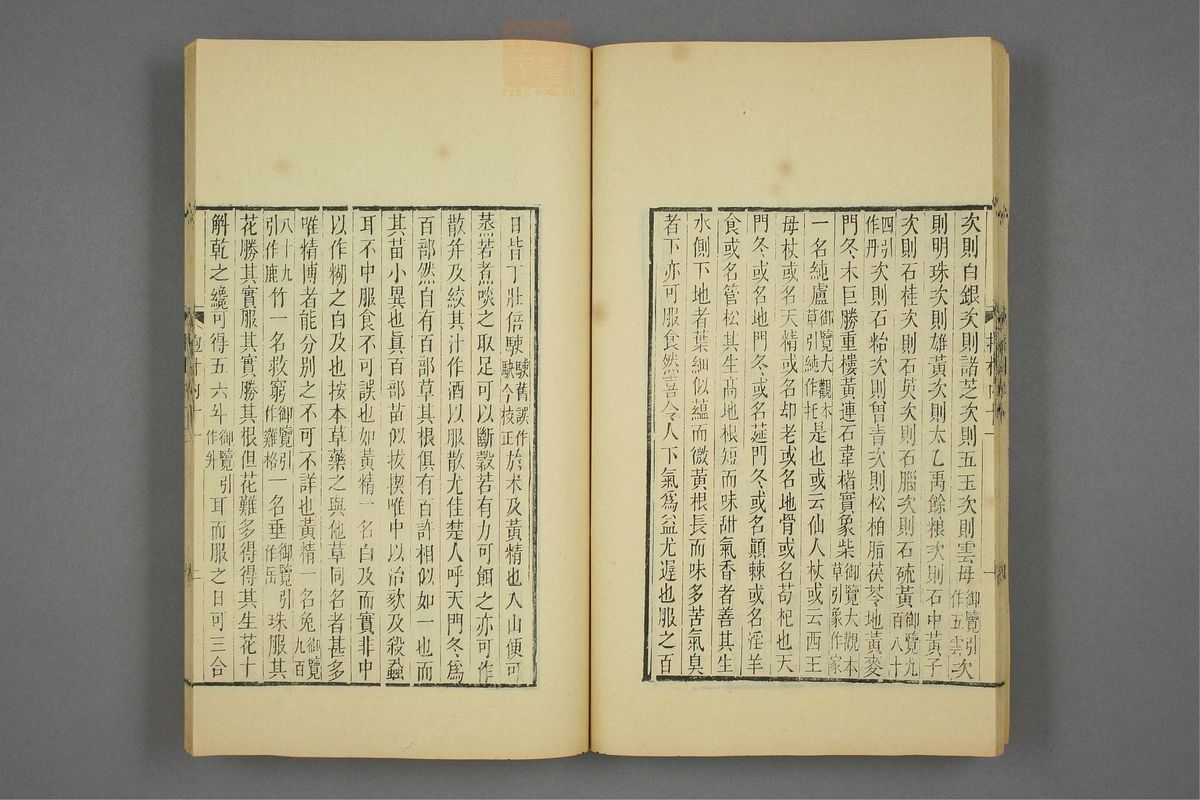 次則白銀次則諸芝次則五玉次則雲母御覽引作五雲次
則明珠次則雄黃次則太乙禹餘粮次則石中黃子
次則石桂次則石英次則石腦次則石硫黃御覽九百八十
四引作丹次則石粘次則曾青次則松柏脂茯苓地黃麥
門冬木巨勝重樓黃連石韋楮實象柴御覽大觀本草引象作家
一名純盧御覽大觀本草引純作托是也或云仙人杖或云西王
母杖或名天精或名却老或名地骨或名苟杞也天
門冬或名地門冬或名莚門冬或名顚棘或名淫羊
食或名管松其生高地根短而味甜氣香者善其生
水側下地者葉細似蘊而微黃根長而味多苦氣臭
者下亦可服食然善令人下氣爲益尤遲也服之百
日皆丁壯倍駛駛舊誤作駃今校正於术及黃精也入山便可
蒸若煮啖之取足可以斷穀若有力可餌之亦可作
散并及絞其汁作酒以服散尤佳楚人呼天門冬爲
百部然自有百部草其根俱有百許相似如一也而
其苗小異也眞百部苗似拔揳唯中以治欬及殺蝨
耳不中服食不可誤也如黃精一名白及而實非中
以作糊之白及也按本草藥之與他草同名者甚多
唯精博者能分别之不可不詳也黃精一名兔御覽九百
八十九引作鹿竹一名救窮御覽引作雞格一名垂御覽引作岳珠服其
花勝其實服其實勝其根但花難多得得其生花十
斛乾之纔可得五六斗御覽引作升耳而服之日可三合